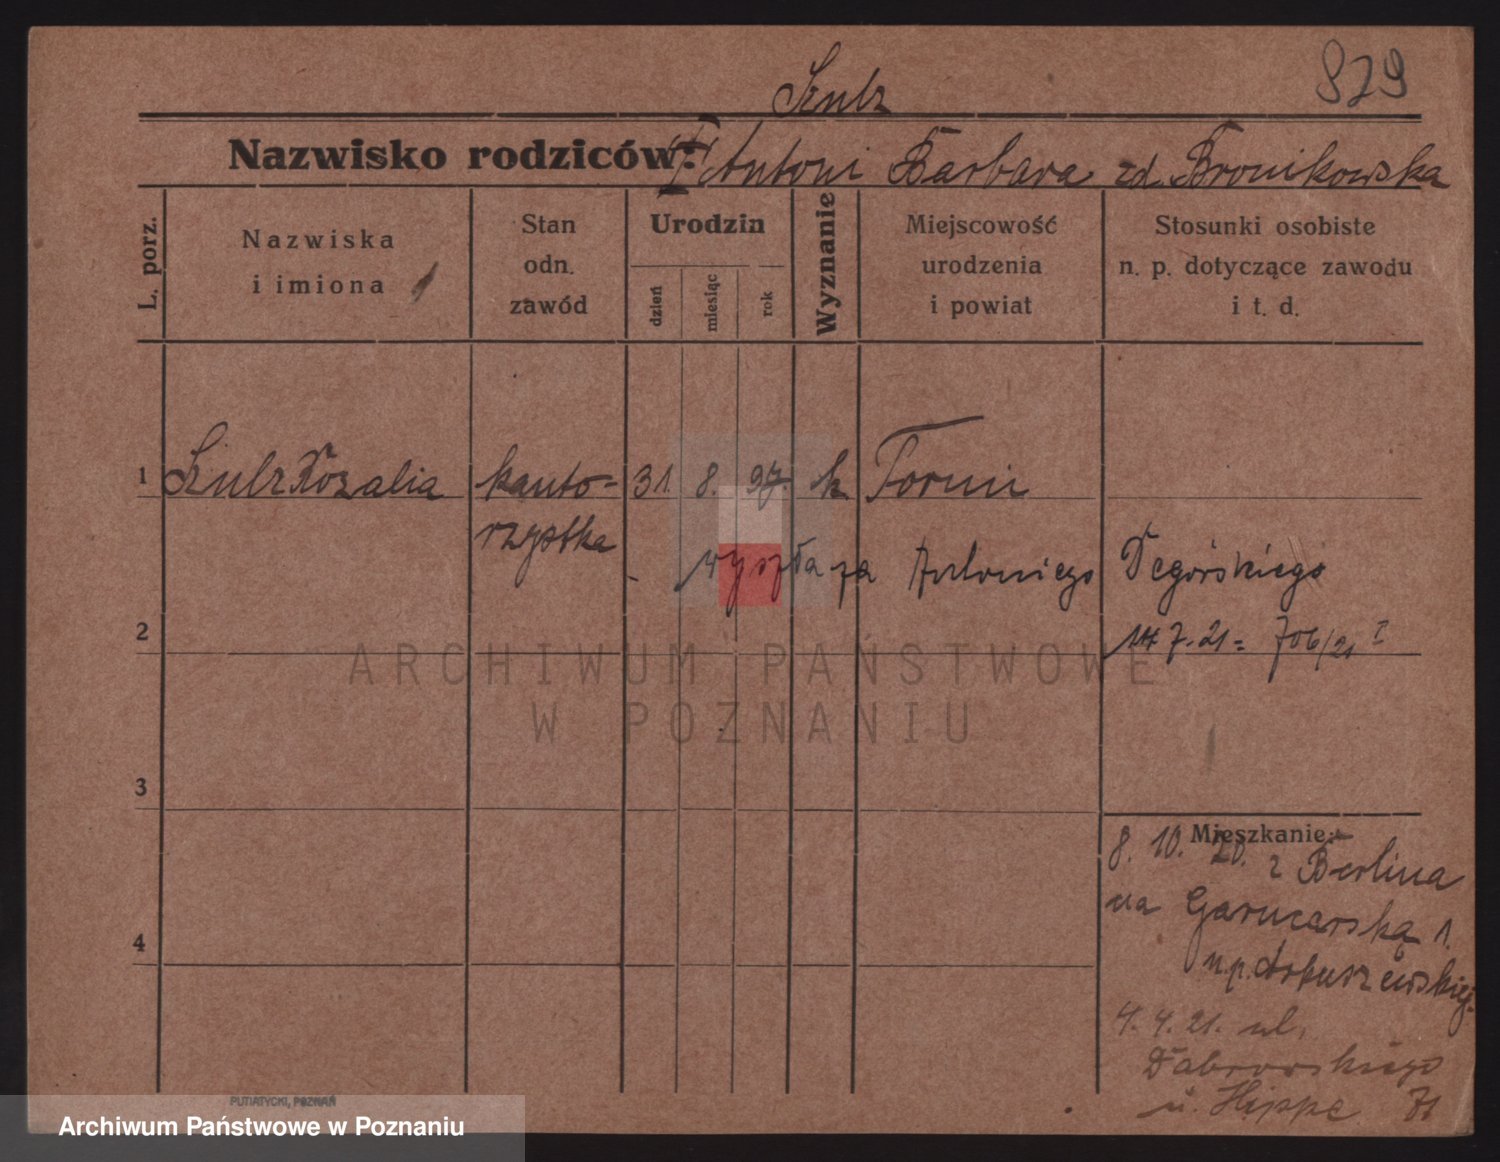 829
Szulz
Nazwisko rodziców: † Antoni Barbara zd. Bronikowska
L. porz.
Nazwiska
i imiona
Stan
odn.
zawód
Urodzin
dzień
miesiąc
rok
Wyznanie
Miejscowość
urodzenia
i powiat
Stosunki osobiste
n. p. dotyczące zawodu
i t. d.
1 Szulz Rozalia kanto- 31. 8. 97. k Toruń
rzystka
wyszła za Antoniego Degórskiego
2
7. 21 = 706/21 I
3
Mieszkanie:
8. 10. 20. z Berlina
na Garncarską 1.
n.p. Arkuszewskiej
4
4. 4. 21. ul.
Dąbrowskiego
u. Hippe 71
ARCHIWUM PAŃSTWOWE
W POZNANIU
PUTIATYCKI, POZNAŃ
Archiwum Państwowe w Poznaniu